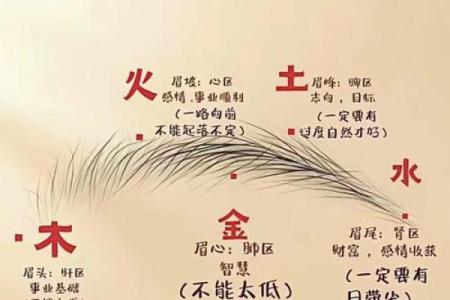 火
眉坡：心区
感情、事业顺利
（一路向前
不能起落不定）
土
眉峰：脾区
志向，目标
（一定要有
过度自然才好）
木
眉头：肝区
事业基础
金
眉心：肺区
智慧
（不能太低）
水
眉尾：肾区
财富，感情收获
（一定要有